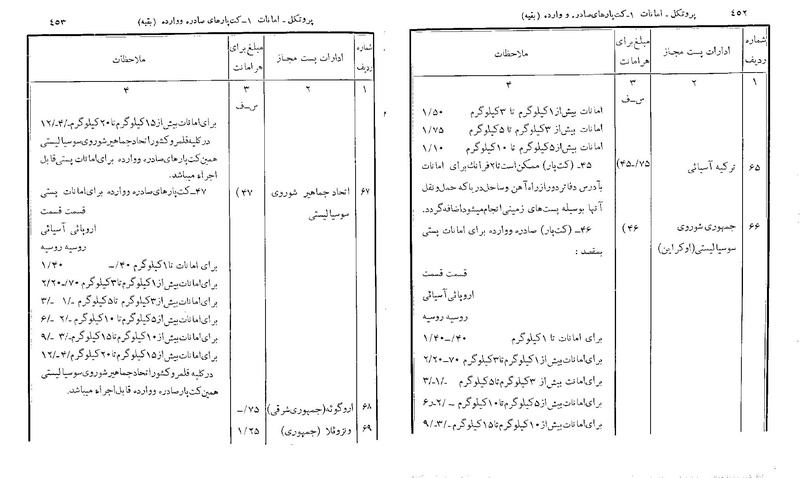 ۴۵۲ پروتکل ـ امانات ۱ـ کت‌پارهای صادره و وارده (بقیه)
شماره ردیف
ادارات پست مجاز
مبلغ برای هر امانت
ملاحظات
۱
۲
۳
۴
س ـ ف
امانات بیش از ۱ کیلوگرم تا ۳ کیلوگرم ۱/۵۰
امانات بیش از ۳ کیلوگرم تا ۵ کیلوگرم ۱/۷۵
امانات بیش از ۵ کیلوگرم تا ۱۰ کیلوگرم ۱/۱۰
۶۵ ترکیه آسیائی ۷۵/ـ(۴۵
۴۵ـ (کت‌پار) ممکن است تا ۲ فرانک برای امانات
بآدرس دفاتر دور از راه آهن و ساحل دریا که حمل و نقل
آنها بوسیله پست‌های زمینی انجام میشود اضافه گردد.
۶۶ جمهوری شوروی (۴۶
سوسیالیستی (اوکراین)
۴۶ـ (کت‌پار) صادره و وارده برای امانات پستی
بمقصد :
قسمت قسمت
اروپائی آسیائی
روسیه روسیه
برای امانات تا ۱ کیلوگرم ۴۰/ــ۱/۴۰
برای امانات بیش از ۱ کیلوگرم تا ۳ کیلوگرم ۷۰ــ۲/۲۰
برای امانت بیش از ۳ کیلوگرم تا ۵ کیلوگرم ۱/ــ۳/ـ
برای امانات بیش از ۵ کیلوگرم تا ۱۰ کیلوگرم
برای امانات بیش از ۱۰ کیلوگرم تا ۱۵ کیلوگرم ۳/ــ۹/ـ
پروتکل ـ امانات ۱ـ کت‌پارهای صادره و وارده (بقیه) ۴۵۳
شماره ردیف
ادارات پست مجاز
مبلغ برای هر امانت
ملاحظات
۱
۲
۳
۴
س ـ ف
برای امانات بیش از ۱۵ کیلوگرم تا ۲۰ کیلوگرم ۴/ــ۱۲/ـ
در کلیه قلمرو کشور اتحاد جماهیر شوروی سوسیالیستی
همین کت‌پارهای صادره و وارده برای امانات پستی قابل
اجراء میباشد.
۶۷ اتحاد جماهیر شوروی (۴۷
سوسیالیستی
۴۷ـ کت‌پارهای صادره و وارده برای امانات پستی
قسمت قسمت
اروپائی آسیائی
روسیه روسیه
برای امانات تا ۱ کیلوگرم ۴۰/ـ ۱/۴۰
برای امانات بیش از ۱ کیلوگرم تا ۳ کیلوگرم ۷۰/ـ۲/۲۰
برای امانات بیش از ۳ کیلوگرم تا ۵ کیلوگرم ۱/ـ ۳/ـ
برای امانات بیش از ۵ کیلوگرم تا ۱۰ کیلوگرم ۲/ـ ۶/ـ
برای امانات بیش از ۱۰ کیلوگرم تا ۱۵ کیلوگرم ۳/ـ ۹/ـ
برای امانات بیش از ۱۵ کیلوگرم تا ۲۰ کیلوگرم ۴/ـ۱۲/ـ
در کلیه قلمرو کشور اتحاد جماهیر شوروی سوسیالیستی
همین کت‌پار صادره و وارده قابل اجراء میباشد.
۶۸ اروگوئه (جمهوری شرقی) ۷۵/ـ
۶۹ ونزوئلا (جمهوری) ۱/۲۵